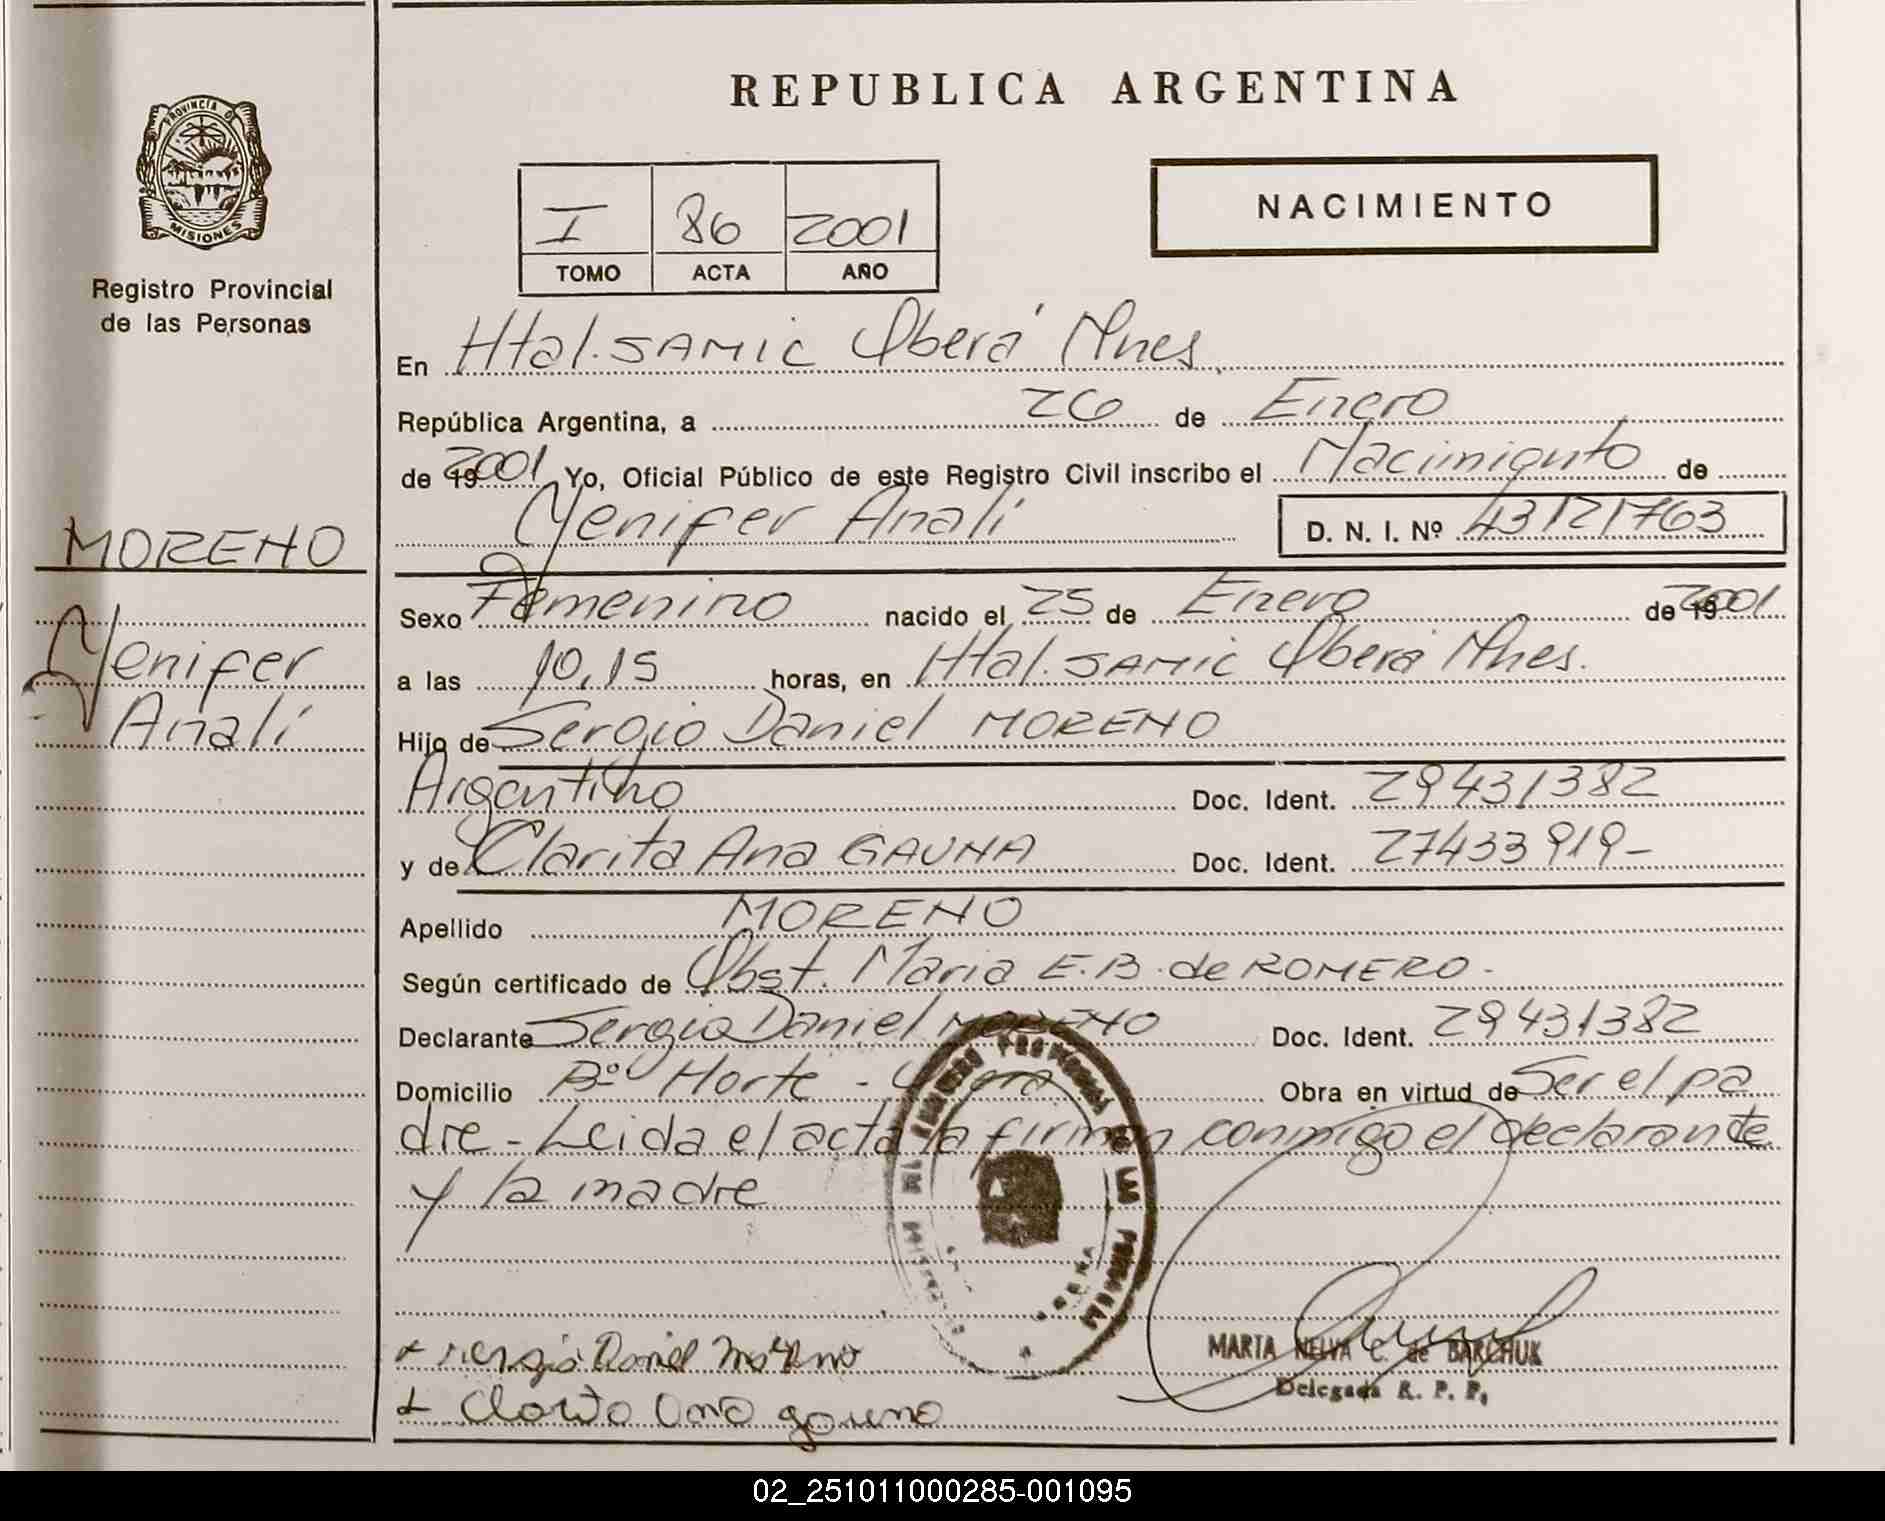 REPUBLICA ARGENTINA
PROVINCIA DE
MISIONES
Registro Provincial
de las Personas
I 86 2001
TOMO ACTA AÑO
NACIMIENTO
En Htal. SAMIC Oberá Mnes
República Argentina, a 26 de Enero
de 19 2001 Yo, Oficial Público de este Registro Civil inscribo el Nacimiento de
Yenifer Analí D. N. I. Nº 43121763
MORENO
Yenifer
Analí
Sexo Femenino nacido el 25 de Enero de 19 2001
a las 10,15 horas, en Htal. SAMIC Oberá Mnes.
Hijo de Sergio Daniel MORENO
Argentino Doc. Ident. 29431382
y de Clarita Ana GAUNA Doc. Ident. 27433919-
Apellido MORENO
Según certificado de Obst. Maria E.B. de ROMERO-
Declarante Sergio Daniel MORENO Doc. Ident. 29431382
Domicilio Bº Norte - Oberá Obra en virtud de Ser el pa
dre - Leida el acta la firman conmigo el declarante
y la madre
Sergio Daniel Moreno
Clarita Ana gauna
MARTA NELVA C. de BARCHUK
Delegada R. P. P.
02_251011000285-001095